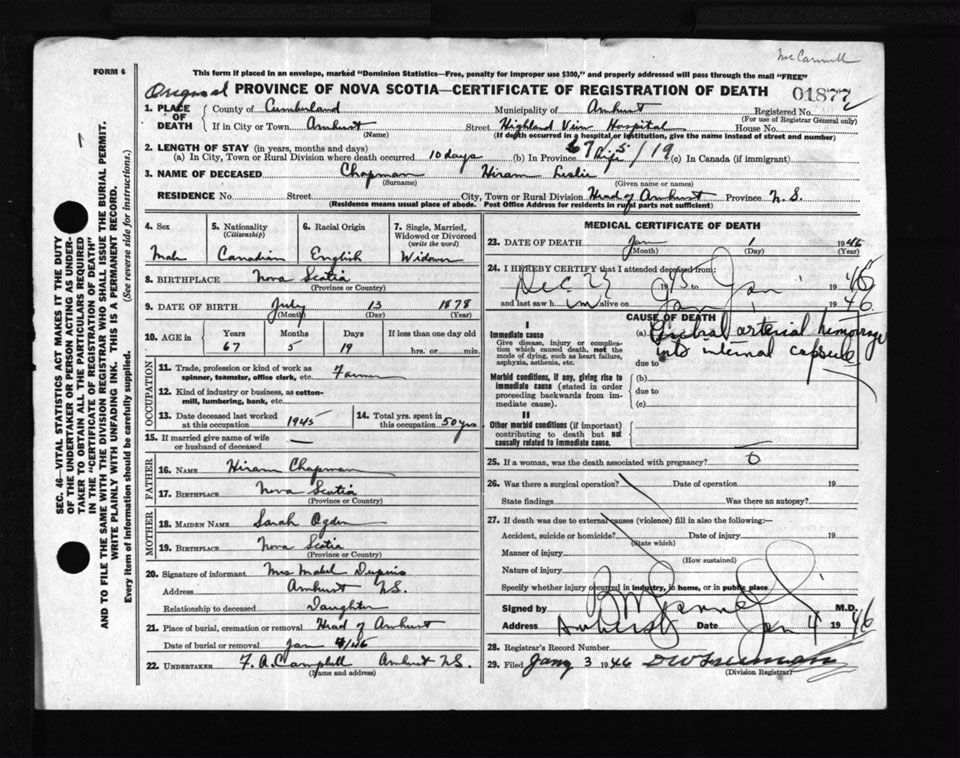 McCannell
FORM 6
This form if placed in an envelope, marked "Dominion Statistics—Free, penalty for improper use $300," and properly addressed will pass through the mail "FREE"
Original PROVINCE OF NOVA SCOTIA—CERTIFICATE OF REGISTRATION OF DEATH 01877
1. PLACE OF DEATH County of Cumberland Municipality of Amherst Registered No.
(For use of Registrar General only)
If in City or Town Amherst Street Highland View Hospital House No.
(Name) (If death occurred in a hospital or institution, give the name instead of street and number)
2. LENGTH OF STAY (in years, months and days)
(a) In City, Town or Rural Division where death occurred 10 days (b) In Province 67 5/19 (c) In Canada (if immigrant)
3. NAME OF DECEASED Chapman Hiram Leslie
(Surname) (Given name or names)
RESIDENCE No. Street City, Town or Rural Division Head of Amherst Province N.S.
(Residence means usual place of abode. Post Office Address for residents in rural parts not sufficient)
4. Sex 5. Nationality (Citizenship) 6. Racial Origin 7. Single, Married, Widowed or Divorced (write the word)
Male Canadian English Widower
8. BIRTHPLACE Nova Scotia
(Province or Country)
9. DATE OF BIRTH July 13 1878
(Month) (Day) (Year)
10. AGE in Years Months Days If less than one day old
67 5 19 hrs. or min.
OCCUPATION
11. Trade, profession or kind of work as spinner, teamster, office clerk, etc. Farmer
12. Kind of industry or business, as cotton-mill, lumbering, bank, etc.
13. Date deceased last worked at this occupation 1945 14. Total yrs. spent in this occupation 50 yrs
15. If married give name of wife or husband of deceased —
FATHER
16. NAME Hiram Chapman
17. BIRTHPLACE Nova Scotia
(Province or Country)
MOTHER
18. MAIDEN NAME Sarah Ogden
19. BIRTHPLACE Nova Scotia
(Province or Country)
20. Signature of informant Mrs Mabel Dupuis
Address Amherst N.S.
Relationship to deceased Daughter
21. Place of burial, cremation or removal Head of Amherst
Date of burial or removal Jan 4/46
22. UNDERTAKER F. A. Campbell Amherst N.S.
(Name and address)
MEDICAL CERTIFICATE OF DEATH
23. DATE OF DEATH Jan 1 1946
(Month) (Day) (Year)
24. I HEREBY CERTIFY that I attended deceased from:
Dec 1945 to Jan 1 1946
and last saw h im alive on Jan 1 1946
CAUSE OF DEATH
I
Immediate cause
Give disease, injury or complication which caused death, not the mode of dying, such as heart failure, asphyxia, asthenia, etc.
(a) arterial hemorrage
into internal capsule
due to
Morbid conditions, if any, giving rise to immediate cause (stated in order proceeding backwards from immediate cause).
(b)
due to
(c)
II
Other morbid conditions (if important) contributing to death but not causally related to immediate cause.
25. If a woman, was the death associated with pregnancy?
26. Was there a surgical operation? Date of operation 19
State findings Was there an autopsy?
27. If death was due to external causes (violence) fill in also the following:
Accident, suicide or homicide? Date of injury 19
(State which)
Manner of injury
(How sustained)
Nature of injury
Specify whether injury occurred in industry, in home, or in public place
Signed by M.D.
Address Amherst Date Jan 4 1946
28. Registrar's Record Number
29. Filed Jany 3 1946 D W Freeman
(Division Registrar)
SEC. 46—VITAL STATISTICS ACT MAKES IT THE DUTY
OF THE UNDERTAKER OR PERSON ACTING AS UNDER-
TAKER TO OBTAIN ALL THE PARTICULARS REQUIRED
IN THE "CERTIFICATE OF REGISTRATION OF DEATH"
AND TO FILE THE SAME WITH THE DIVISION REGISTRAR WHO SHALL ISSUE THE BURIAL PERMIT.
WRITE PLAINLY WITH UNFADING INK. THIS IS A PERMANENT RECORD.
Every item of information should be carefully supplied. (See reverse side for instructions.)